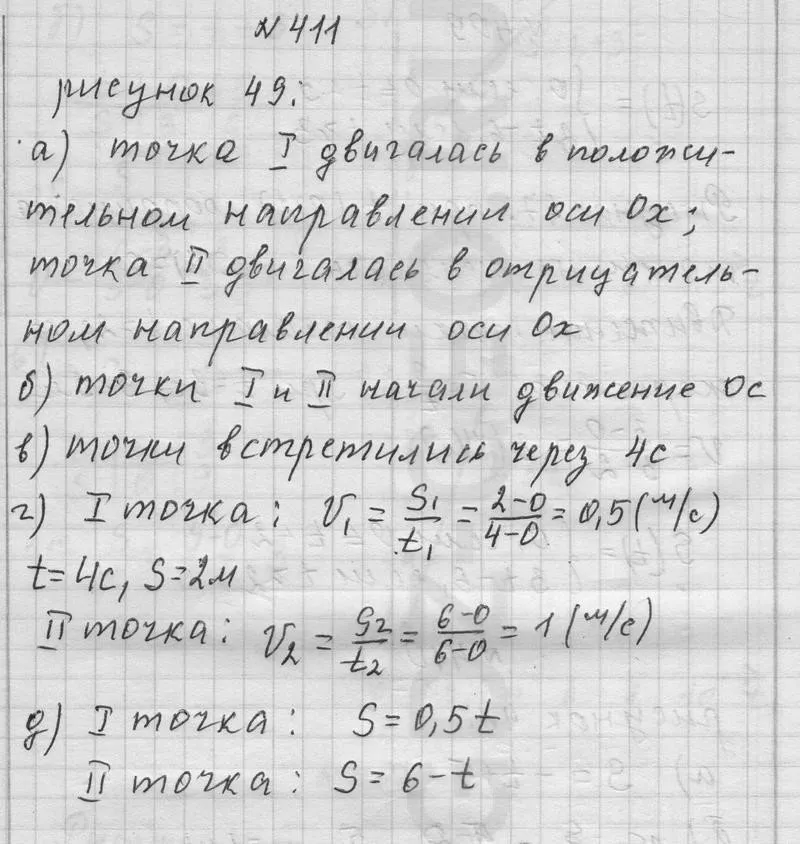 № 411
рисунок 49:
а) точка I двигалась в положи-
тельном направлении оси Ox;
точка II двигалась в отрицатель-
ном направлении оси Ox
б) точки I и II начали движение 0с
в) точки встретились через 4с
г) I точка: V₁ = S₁/t₁ = 2-0/4-0 = 0,5 (м/с)
t=4с, S=2м
II точка: V₂ = S₂/t₂ = 6-0/6-0 = 1 (м/с)
д) I точка: S=0,5t
II точка: S=6-t